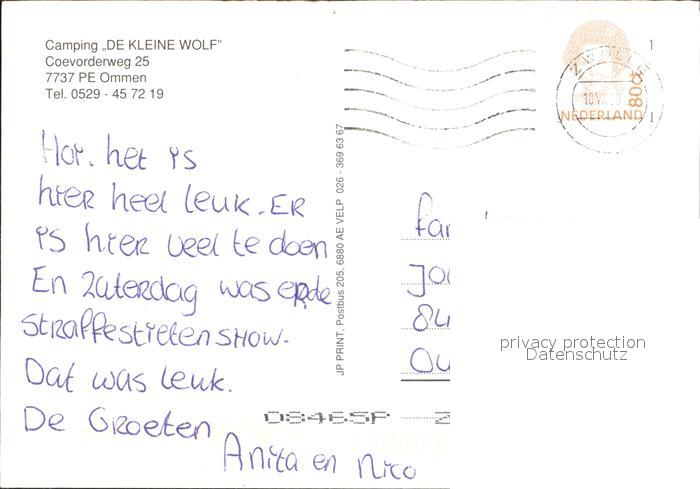 Camping „DE KLEINE WOLF"
Coevorderweg 25
7737 PE Ommen
Tel. 0529 - 45 72 19
Hoi. het is
hier heel leuk. ER
is hier veel te doen
En zaterdag was er de
Straffestieten show.
Dat was leuk.
De Groeten
Anita en Nico
JP PRINT, Postbus 205, 6880 AE VELP 026 - 369 63 67
ZWOLLE
80c
NEDERLAND
1
1
fa
Jo
84
Ou
privacy protection
Datenschutz
0846SP